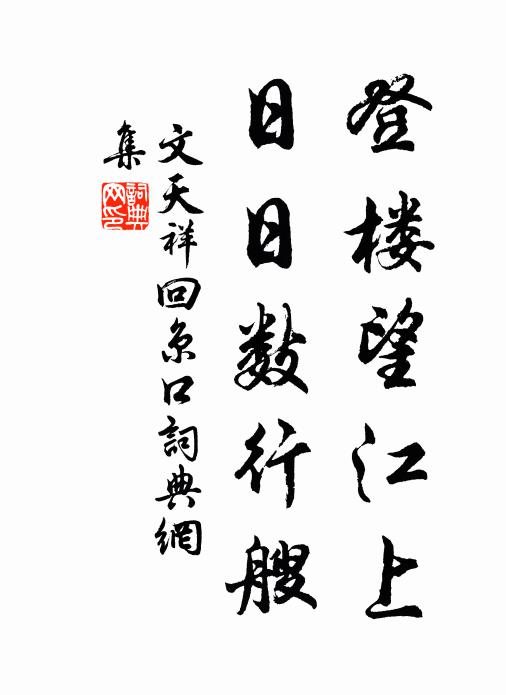 登楼望江上
日日数行艘
文天祥回京口詞典網
集
詞典
网印